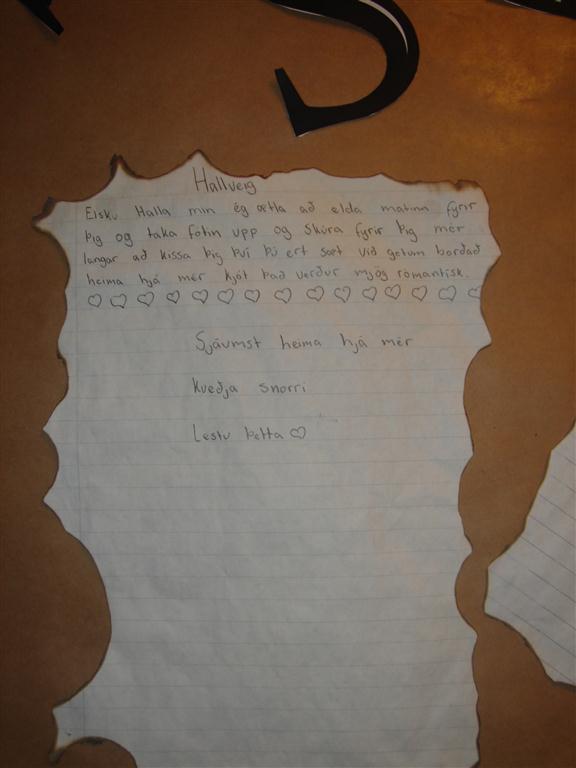 S
Hallveig
Elsku Halla min ég ætla að elda matinn fyrir
þig og taka fötin upp og skúra fyrir þig mér
langar að kissa þig því þú ert sæt við getum borðað
heima hjá mér kjöt það verður mjög romantisk.
♡ ♡ ♡ ♡ ♡ ♡ ♡ ♡ ♡ ♡ ♡ ♡ ♡ ♡ ♡
Sjáumst heima hjá mér
Kveðja snorri
Lestu þetta ♡